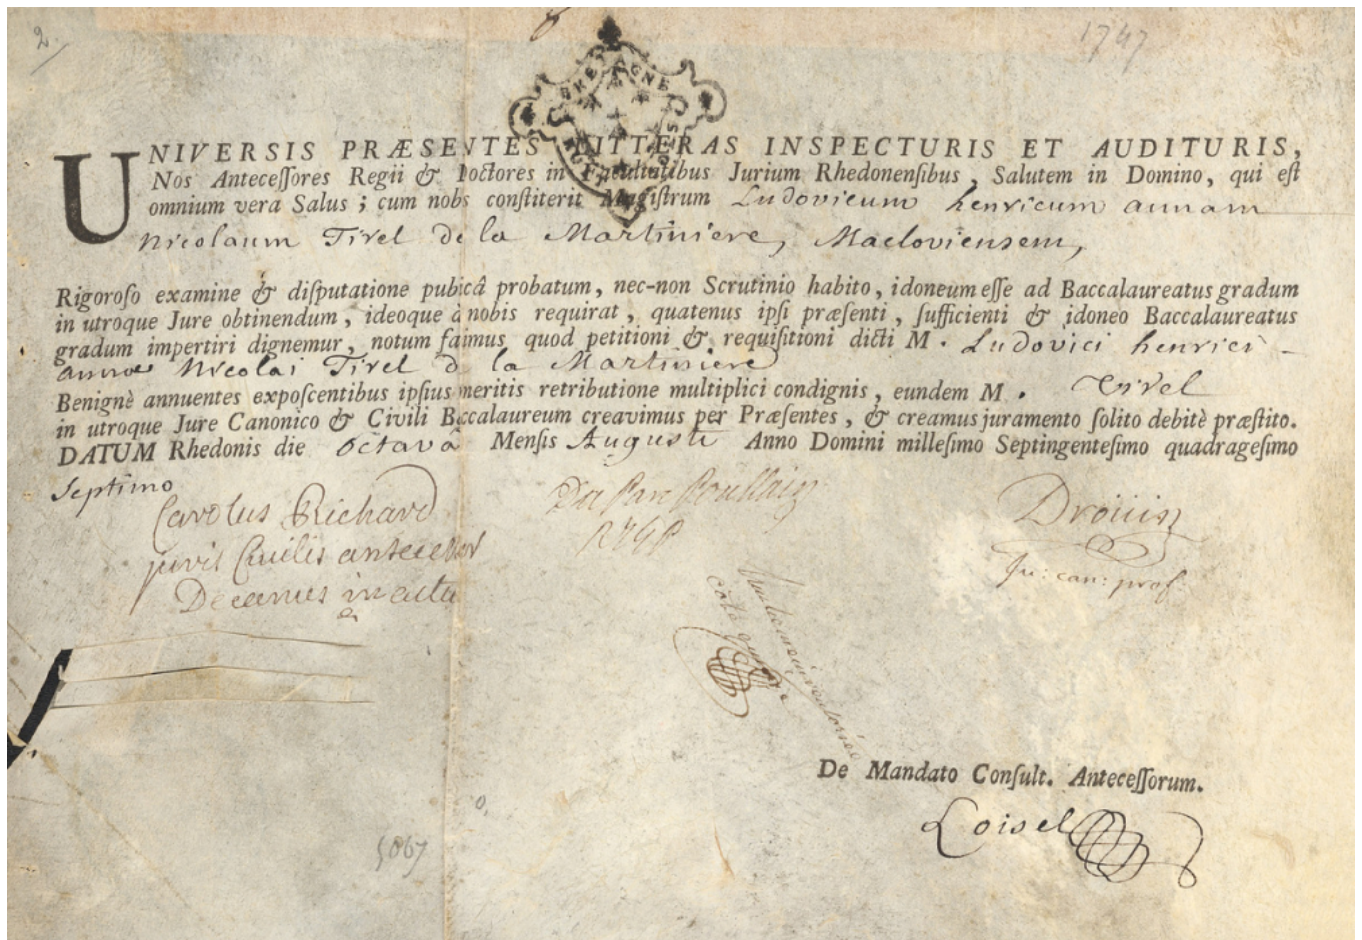 2.
1747
BRETAGNE
UNIVERSIS PRÆSENTES LITTERAS INSPECTURIS ET AUDITURIS,
Nos Antecessores Regii & Doctores in Facultatibus Jurium Rhedonensibus, Salutem in Domino, qui est
omnium vera Salus; cum nobs constiterit Magistrum Ludovicum henricum annam
Nicolaum Tirel de la Martiniere, Macloviensem,
Rigoroso examine & disputatione pubicâ probatum, nec-non Scrutinio habito, idoneum esse ad Baccalaureatus gradum
in utroque Jure obtinendum, ideoque à nobis requirat, quatenus ipsi præsenti, sufficienti & idoneo Baccalaureatus
gradum impertiri dignemur, notum faimus quod petitioni & requisitioni dicti M. Ludovici henrici -
annæ Nicolai Tirel de la Martiniere
Benignè annuentes exposcentibus ipsius meritis retributione multiplici condignis, eundem M. Tirel
in utroque Jure Canonico & Civili Baccalaureum creavimus per Præsentes, & creamus juramento solito debitè præstito.
DATUM Rhedonis die octavâ Mensis Augusti Anno Domini millesimo Septingentesimo quadragesimo
septimo
Carolus Richard
juris Civilis antecessor
Decanus in actu
Du Parc Poullain
Droüin
Ju: can: prof.
De Mandato Consult. Antecessorum.
Loisel
5067